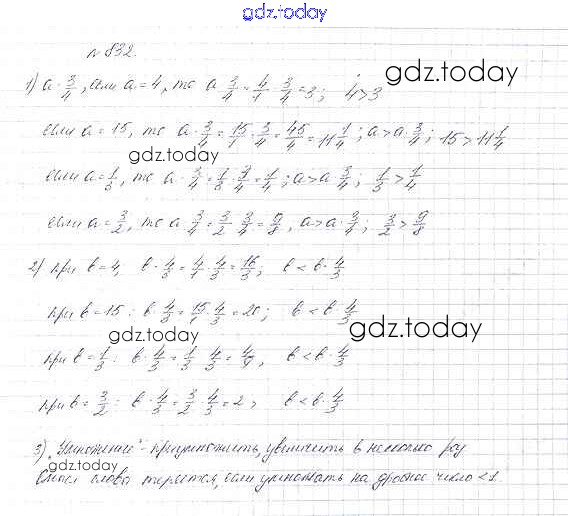 gdz.today
№832.
1) a·3/4, если a=4, то a·3/4=4/1·3/4=3; 4>3
gdz.today
если a=15, то a·3/4=15/1·3/4=45/4=11 1/4; a>a·3/4; 15>11 1/4
gdz.today
если a=1/3, то a·3/4=1/3·3/4=1/4; a>a·3/4; 1/3>1/4
если a=3/2, то a·3/4=3/2·3/4=9/8, a>a·3/4; 3/2>9/8
2) при в=4, в·4/3=4/1·4/3=16/3; в<в·4/3
при в=15: в·4/3=15/1·4/3=20; в<в·4/3
gdz.today
gdz.today
при в=1/3: в·4/3=1/3·4/3=4/9, в<в·4/3
при в=3/2: в·4/3=3/2·4/3=2, в<в·4/3
3) "Умножение"- приумножить, увеличить в несколько раз
gdz.today
Смысл слова теряется, если умножать на дробное число <1.